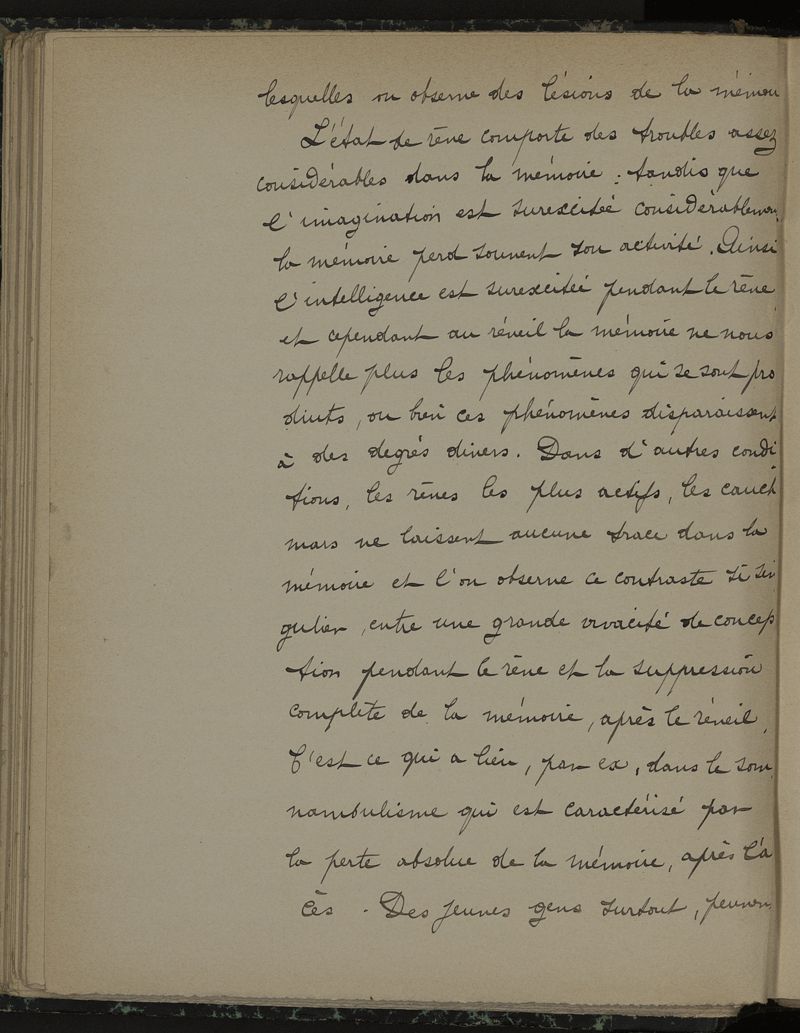 lesquelles on observe des lésions de la mémoi
L'état de rêve comporte des troubles assez
considérables dans la mémoire : tandis que
l'imagination est surexcitée considérablemen
la mémoire perd souvent son activité. Ainsi
l'intelligence est surexcitée pendant le rêve
et cependant au réveil la mémoire ne nous
rappelle plus les phénomènes qui se sont pro
duits, ou bien ces phénomènes disparaissent
à des degrés divers. Dans d'autres condi
tions, les rêves les plus actifs, les cauch
mars ne laissent aucune trace dans la
mémoire et l'on observe ce contraste si sin
gulier, entre une grande vivacité de concep
tion pendant le rêve et la suppression
complète de la mémoire, après le réveil,
C'est ce qui a lieu, par ex, dans le som
nambulisme qui est caractérisé par
la perte absolue de la mémoire, après l'a
cès. Des jeunes gens surtout, peuven